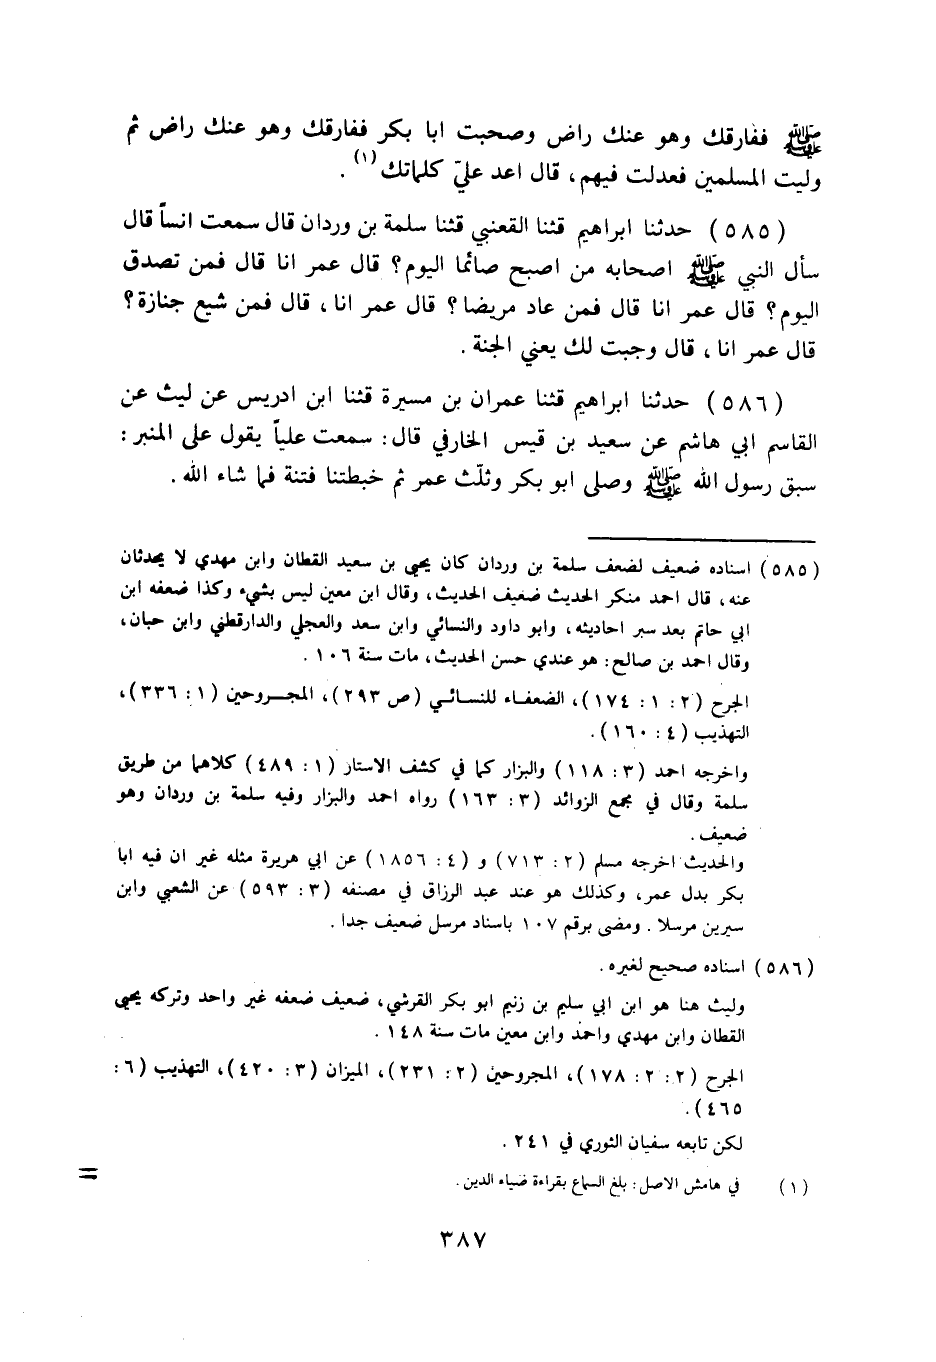 ﷺ ففارقك وهو عنك راض وصحبت ابا بكر ففارقك وهو عنك راض ثم
وليت المسلمين فعدلت فيهم، قال اعد عليّ كلماتك (١) .
(٥٨٥) حدثنا ابراهيم قثنا القعنبي قثنا سلمة بن وردان قال سمعت انساً قال
سأل النبي ﷺ اصحابه من اصبح صائما اليوم؟ قال عمر انا قال فمن تصدق
اليوم؟ قال عمر انا قال فمن عاد مريضا؟ قال عمر انا، قال فمن شيع جنازة؟
قال عمر انا، قال وجبت لك يعني الجنة .
(٥٨٦) حدثنا ابراهيم قثنا عمران بن مسيرة قثنا ابن ادريس عن ليث عن
القاسم ابي هاشم عن سعيد بن قيس الخارفي قال: سمعت علياً يقول على المنبر :
سبق رسول الله ﷺ وصلى ابو بكر وثلّث عمر ثم خبطتنا فتنة فما شاء الله .
(٥٨٥) اسناده ضعيف لضعف سلمة بن وردان كان يحيى بن سعيد القطان وابن مهدي لا يحدثان
عنه، قال احمد منكر الحديث ضعيف الحديث، وقال ابن معين ليس بشيء وكذا ضعفه ابن
ابي حاتم بعد سبر احاديثه، وابو داود والنسائي وابن سعد والعجلي والدارقطني وابن حبان،
وقال احمد بن صالح: هو عندي حسن الحديث، مات سنة ١٠٦ .
الجرح (٢: ١: ١٧٤)، الضعفاء للنسائي (ص ٢٩٣)، المجروحين (١: ٣٣٦)،
التهذيب (٤: ١٦٠).
واخرجه احمد (٣: ١١٨) والبزار كما في كشف الاستار (١: ٤٨٩) كلاهما من طريق
سلمة وقال في مجمع الزوائد (٣: ١٦٣) رواه احمد والبزار وفيه سلمة بن وردان وهو
ضعيف .
والحديث اخرجه مسلم (٢: ٧١٣) و (٤: ١٨٥٦) عن ابي هريرة مثله غير ان فيه ابا
بكر بدل عمر، وكذلك هو عند عبد الرزاق في مصنفه (٣: ٥٩٣) عن الشعبي وابن
سيرين مرسلا . ومضى برقم ١٠٧ باسناد مرسل ضعيف جدا .
(٥٨٦) اسناده صحيح لغيره .
وليث هنا هو ابن ابي سليم بن زنيم ابو بكر القرشي، ضعيف ضعفه غير واحد وتركه يحيى
القطان وابن مهدي واحمد وابن معين مات سنة ١٤٨ .
الجرح (٢: ٢: ١٧٨)، المجروحين (٢: ٢٣١)، الميزان (٣: ٤٢٠)، التهذيب (٦:
٤٦٥).
لكن تابعه سفيان الثوري في ٢٤١ .
(١) في هامش الاصل: بلغ السماع بقراءة ضياء الدين .
=
٣٨٧